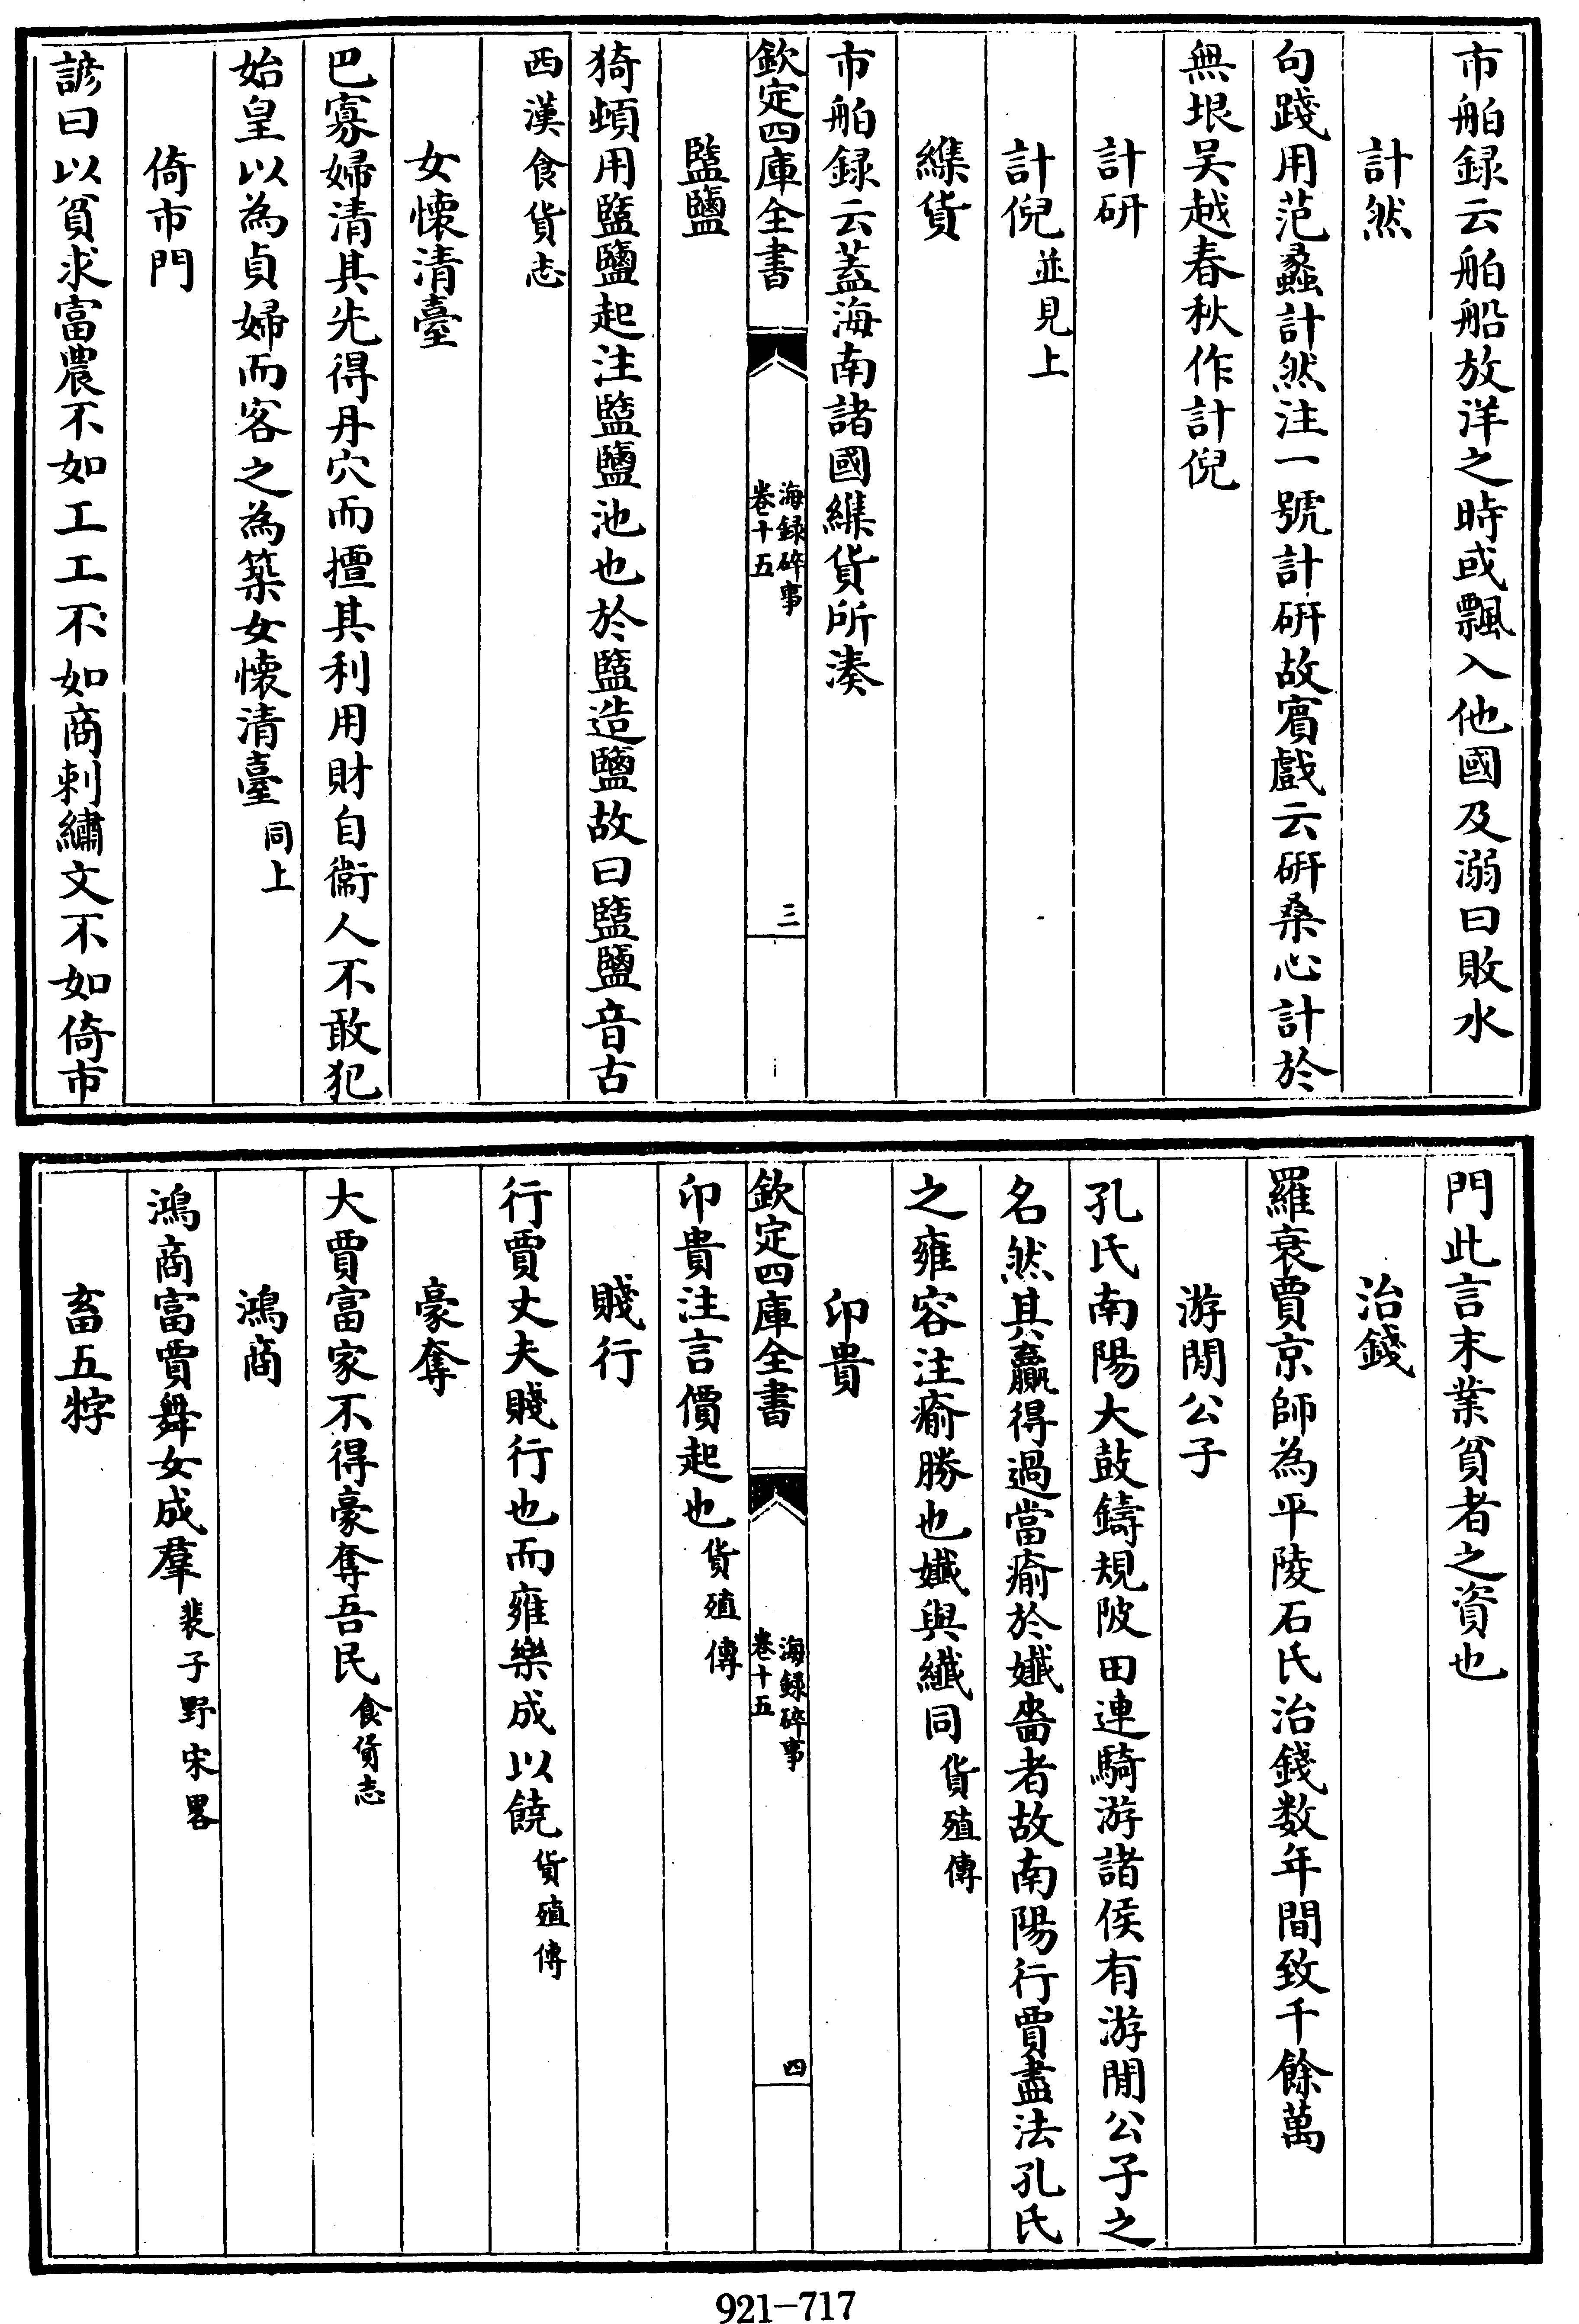 市舶録云舶船放洋之時或飄入他國及溺曰敗水
計然
句踐用范蠡計然注一號計研故賓戲云研桑心計於
無垠吴越春秋作計倪
計研
計倪並見上
緤貨
市舶録云蓋海南諸國緤貨所湊
欽定四庫全書
海録碎事
卷十五
三
盬鹽
猗頓用盬鹽起注盬鹽池也於盬造鹽故曰盬鹽音古
西漢食貨志
女懷清臺
巴寡婦清其先得丹穴而擅其利用財自衞人不敢犯
始皇以為貞婦而客之為築女懷清臺同上
倚市門
諺曰以貧求富農不如工工不如商刺繡文不如倚市
門此言末業貧者之資也
治錢
羅裒賈京師為平陵石氏治錢数年間致千餘萬
游閒公子
孔氏南陽大鼓鑄規陂田連騎游諸侯有游閒公子之
名然其贏得過當瘉於孅嗇者故南陽行賈盡法孔氏
之雍容注瘉勝也孅與纖同貨殖傳
卬貴
欽定四庫全書
海録碎事
卷十五
四
卬貴注言價起也貨殖傳
賤行
行賈丈夫賤行也而雍樂成以饒貨殖傳
豪奪
大賈富家不得豪奪吾民食貨志
鴻商
鴻商富賈舞女成羣裴子野宋畧
畜五牸
921—717